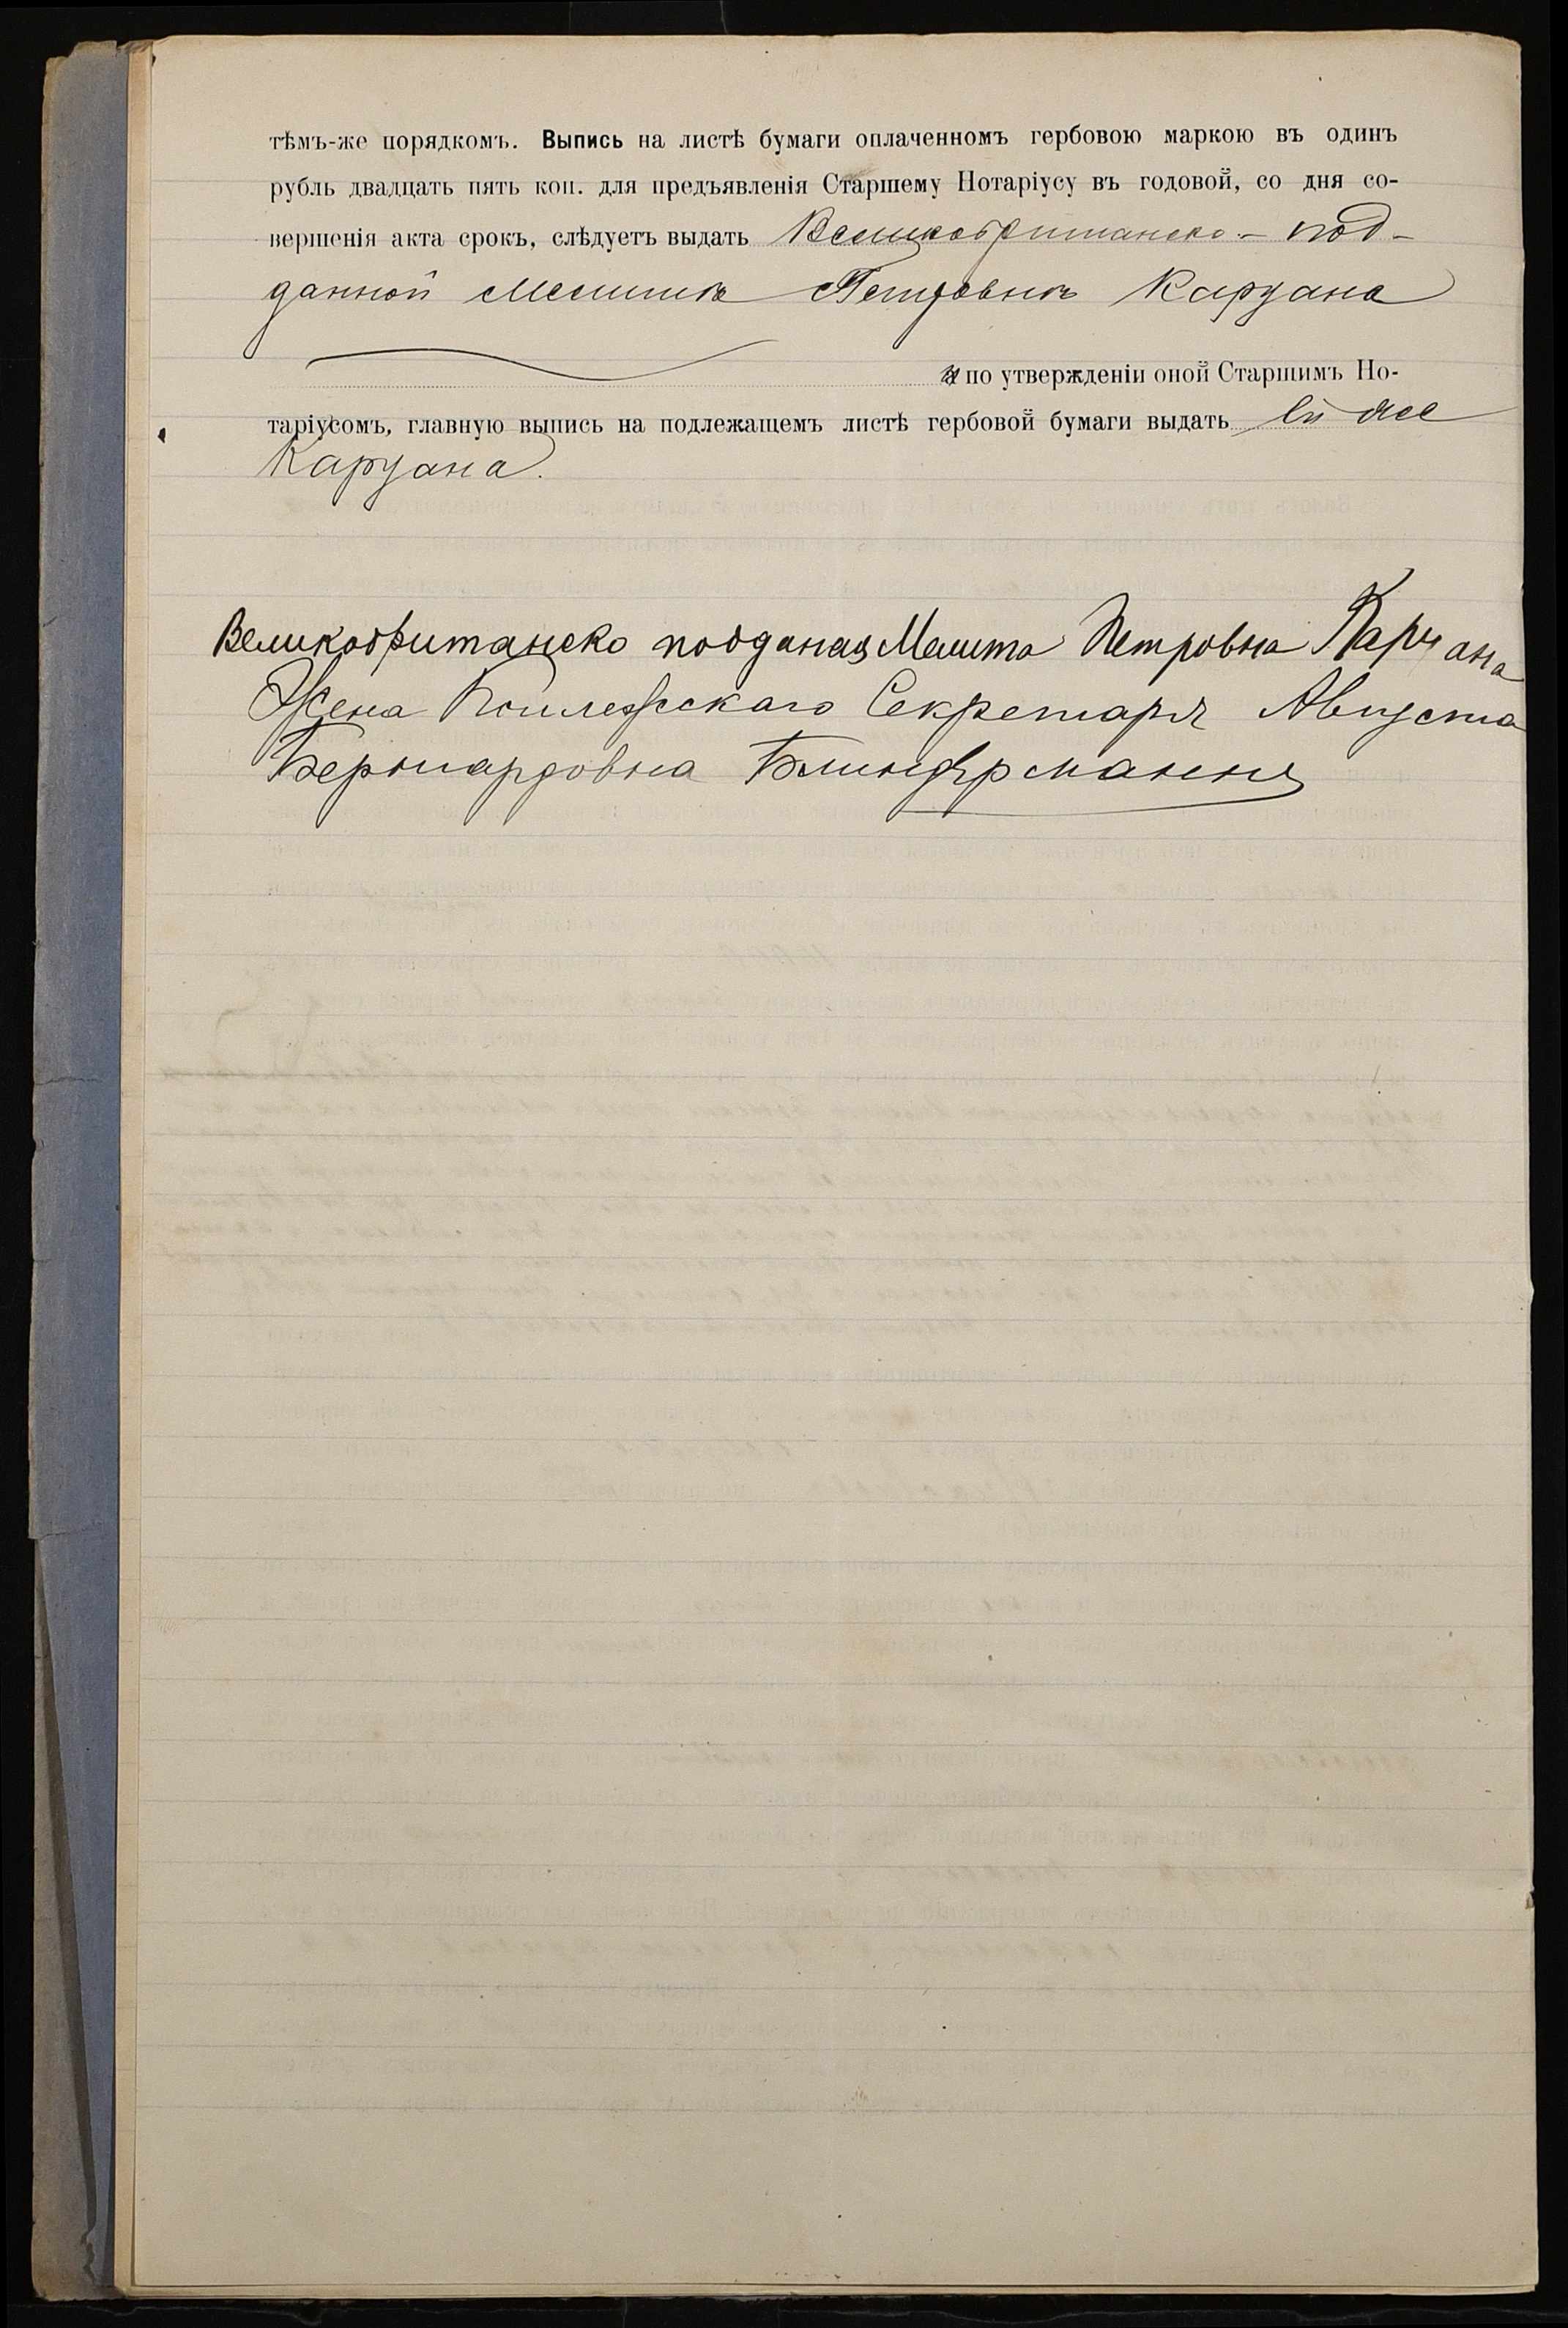 тѣмъ-же порядкомъ. Выпись на листѣ бумаги оплаченномъ гербовою маркою въ одинъ
рубль двадцать пять коп. для предъявленія Старшему Нотаріусу въ годовой, со дня со-
вершенія акта срокъ, слѣдуетъ выдать Великобританско-под-
данной Мелитѣ Петровнѣ Каруана
и по утвержденіи оной Старшимъ Но-
таріусомъ, главную выпись на подлежащемъ листѣ гербовой бумаги выдать ей же
Каруана.
Великобританско подданая Мелита Петровна Каруана
Жена Коллежскаго Секретаря Августа
Бернардовна Блиндерманнъ